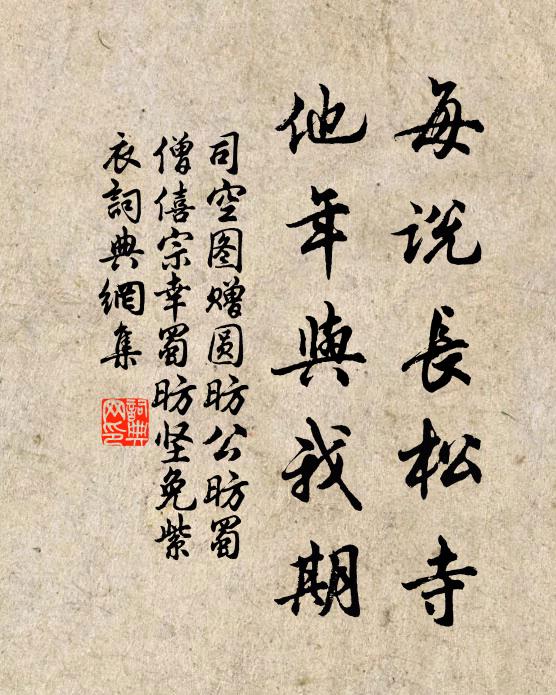 每说長松寺
他年與我期
司空图赠圆昉公昉蜀
僧僖宗幸蜀昉坚免紫
衣詞典網集
詞典
网印